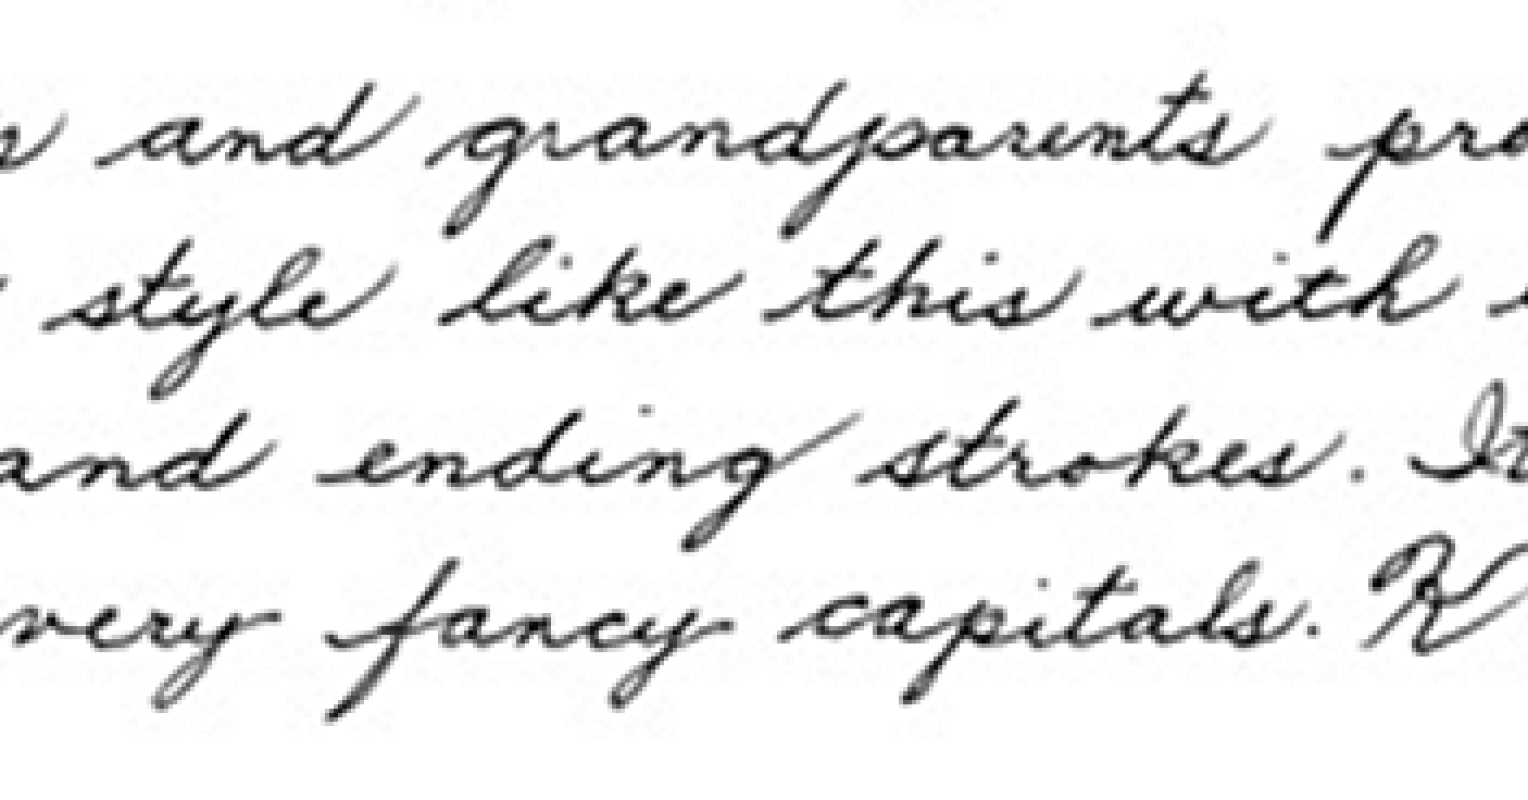 and grandparents pro
style like this with
and ending strokes. It
very fancy capitals.